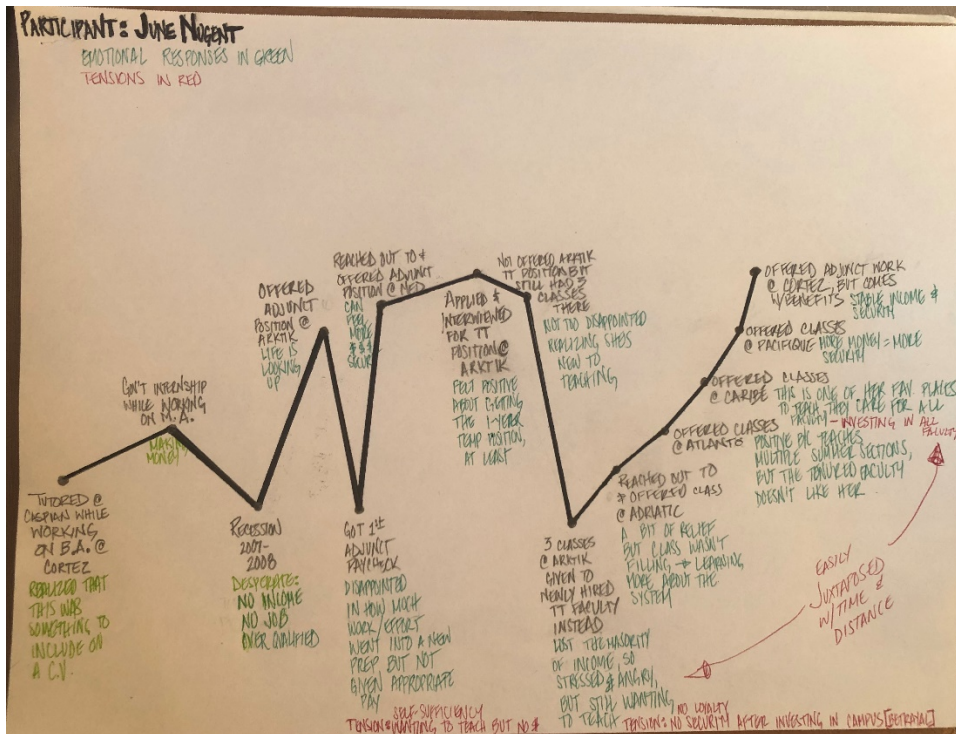 PARTICIPANT: JUNE NUGENT
EMOTIONAL RESPONSES IN GREEN
TENSIONS IN RED
TUTORED @
CASPIAN WHILE
WORKING
ON B.A. @
CORTEZ
REALIZED THAT
THIS WAS
SOMETHING TO
INCLUDE ON
A C.V.
CONT INTERNSHIP
WHILE WORKING
ON M.A.
MAKING
MONEY
RECESSION
2007-
2008
DESPERATE:
NO INCOME
NO JOB
OVER QUALIFIED
OFFERED
ADJUNCT
POSITION @
ARKTIK
LIFE IS
LOOKING
UP
GOT 1ST
ADJUNCT
PAYCHECK
DISAPPOINTED
IN HOW MUCH
WORK/EFFORT
WENT INTO A NEW
PREP BUT NOT
GIVEN APPROPRIATE
PAY
SELF-SUFFICIENCY
TENSION: WANTING TO TEACH BUT NO $
REACHED OUT TO &
OFFERED ADJUNCT
POSITION @ MED
CAN
FEEL
MORE
$$$
SECUR
APPLIED &
INTERVIEWED
FOR TT
POSITION @
ARKTIK
FELT POSITIVE
ABOUT GETTING
THE 1-YEAR
TEMP POSITION,
AT LEAST
NOT OFFERED ARKTIK
TT POSITION BUT
STILL HAD 3
CLASSES
THERE
NOT TOO DISAPPOINTED
REALIZING SHE'S
NEW TO
TEACHING
3 CLASSES
@ ARKTIK
GIVEN TO
NEWLY HIRED
TT FACULTY
INSTEAD
LOST THE MAJORITY
OF INCOME, SO
STRESSED & ANGRY,
BUT STILL WANTING
TO TEACH
NO LOYALTY
TENSION: NO SECURITY AFTER INVESTING IN CAMPUS [BETRAYAL]
REACHED OUT TO
& OFFERED CLASS
@ ADRIATIC
A BIT OF RELIEF
BUT CLASS WASN'T
FILLING → LEARNING
MORE ABOUT THE
SYSTEM
OFFERED CLASSES
@ ATLANTO
POSITIVE B/C TEACHES
MULTIPLE SUMMER SECTIONS,
BUT THE TENURED FACULTY
DOESN'T LIKE HER
OFFERED CLASSES
@ CARIBE THIS IS ONE OF HER FAV. PLACES
TO TEACH, THEY CARE FOR ALL
FACULTY - INVESTING IN ALL
FACULTY
OFFERED CLASSES
@ PACIFIQUE MORE MONEY = MORE
SECURITY
OFFERED ADJUNCT WORK
@ CORTEZ, BUT COMES
W/BENEFITS STABLE INCOME &
SECURITY
EASILY
JUXTAPOSED
W/TIME &
DISTANCE